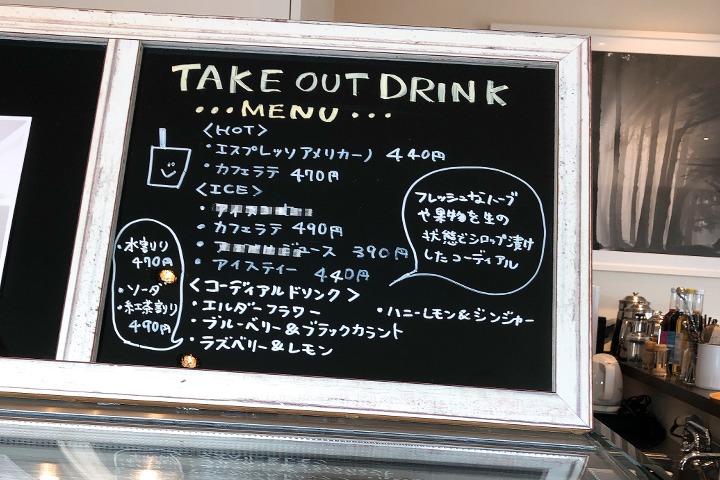 TAKE OUT DRINK
...MENU...
<HOT>
・エスプレッソアメリカーノ 440円
・カフェラテ 470円
<ICE>
・カフェラテ 490円
ジュース 390円
・アイスティー 440円
<コーディアルドリンク>
・エルダーフラワー
・ハニーレモン&ジンジャー
・ブルーベリー&ブラックカラント
・ラズベリー&レモン
・水割り
470円
・ソーダ
・紅茶割り
490円
フレッシュなハーブ
や果物を生の
状態でシロップ漬け
したコーディアル